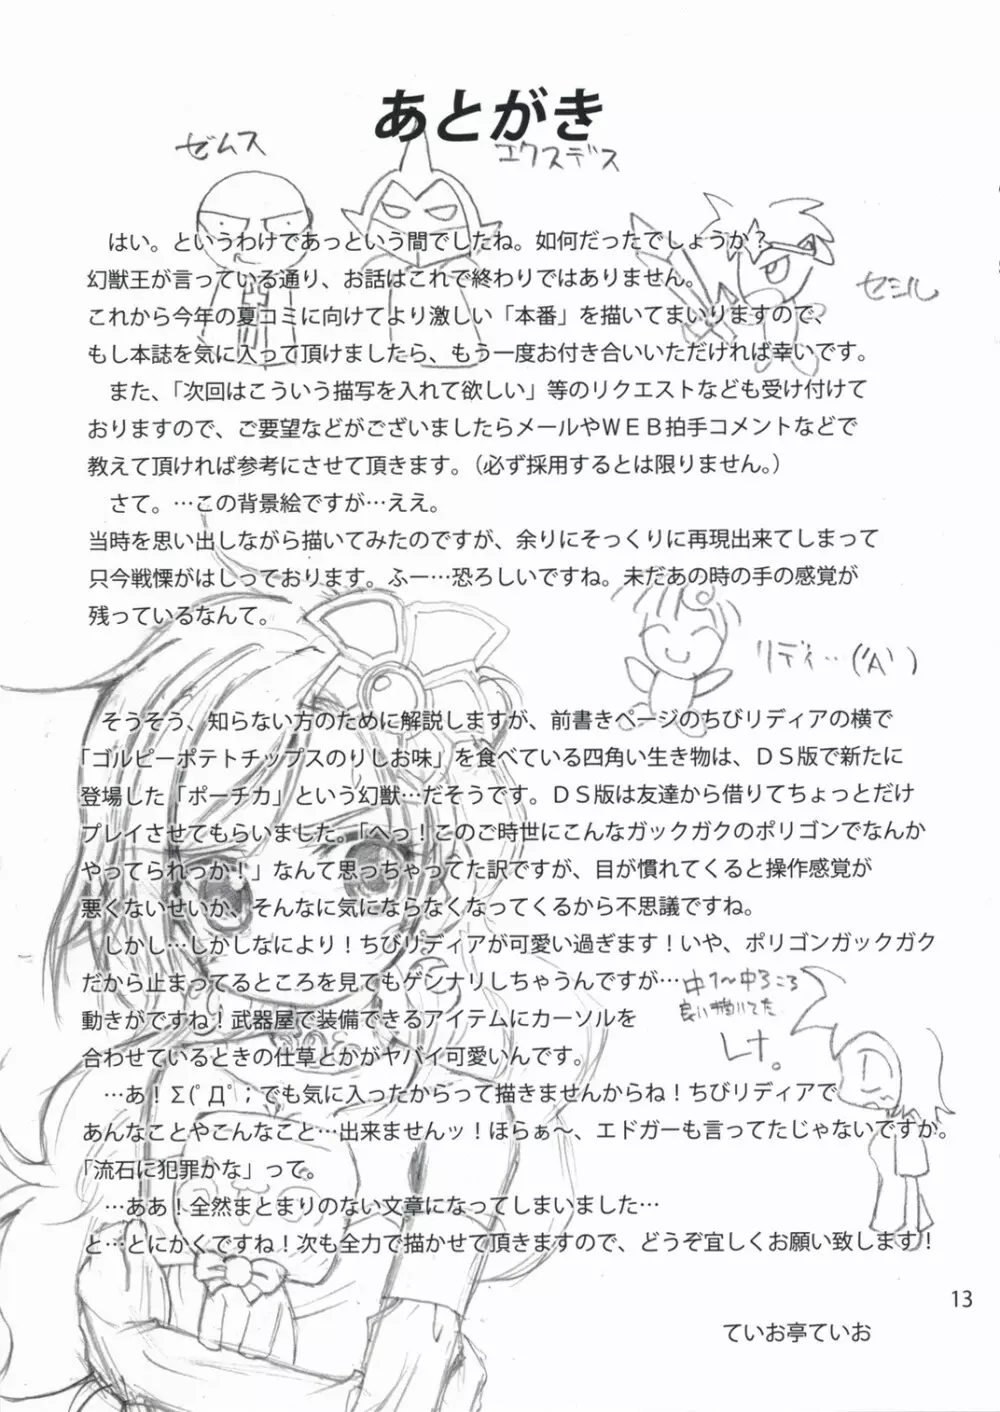 あとがき
ゼムス
エクスデス
セシル
はい。というわけであっという間でしたね。如何だったでしょうか？
幻獣王が言っている通り、お話はこれで終わりではありません。
これから今年の夏コミに向けてより激しい「本番」を描いてまいりますので、
もし本誌を気に入って頂けましたら、もう一度お付き合いいただければ幸いです。
また、「次回はこういう描写を入れて欲しい」等のリクエストなども受け付けて
おりますので、ご要望などがございましたらメールやＷＥＢ拍手コメントなどで
教えて頂ければ参考にさせて頂きます。（必ず採用するとは限りません。）
さて。…この背景絵ですが…ええ。
当時を思い出しながら描いてみたのですが、余りにそっくりに再現出来てしまって
只今戦慄がはしっております。ふー…恐ろしいですね。未だあの時の手の感覚が
残っているなんて。
リディ…('A`)
そうそう、知らない方のために解説しますが、前書きページのちびリディアの横で
「ゴルピーポテトチップスのりしお味」を食べている四角い生き物は、ＤＳ版で新たに
登場した「ポーチカ」という幻獣…だそうです。ＤＳ版は友達から借りてちょっとだけ
プレイさせてもらいました。「へっ！このご時世にこんなガックガクのポリゴンでなんか
やってられっか！」なんて思っちゃってた訳ですが、目が慣れてくると操作感覚が
悪くないせいか、そんなに気にならなくなってくるから不思議ですね。
しかし…しかしなにより！ちびリディアが可愛い過ぎます！いや、ポリゴンガックガク
だから止まってるところを見てもゲンナリしちゃうんですが…
動きがですね！武器屋で装備できるアイテムにカーソルを
合わせているときの仕草とかがヤバイ可愛いんです。
中1〜中3ころ
良い描いてた
レナ。
…あ！Σ(ﾟДﾟ；でも気に入ったからって描きませんからね！ちびリディアで
あんなことやこんなこと…出来ませんッ！ほらぁ〜、エドガーも言ってたじゃないですか。
「流石に犯罪かな」って。
…ああ！全然まとまりのない文章になってしまいました…
と…とにかくですね！次も全力で描かせて頂きますので、どうぞ宜しくお願い致します！
13
ていお亭ていお